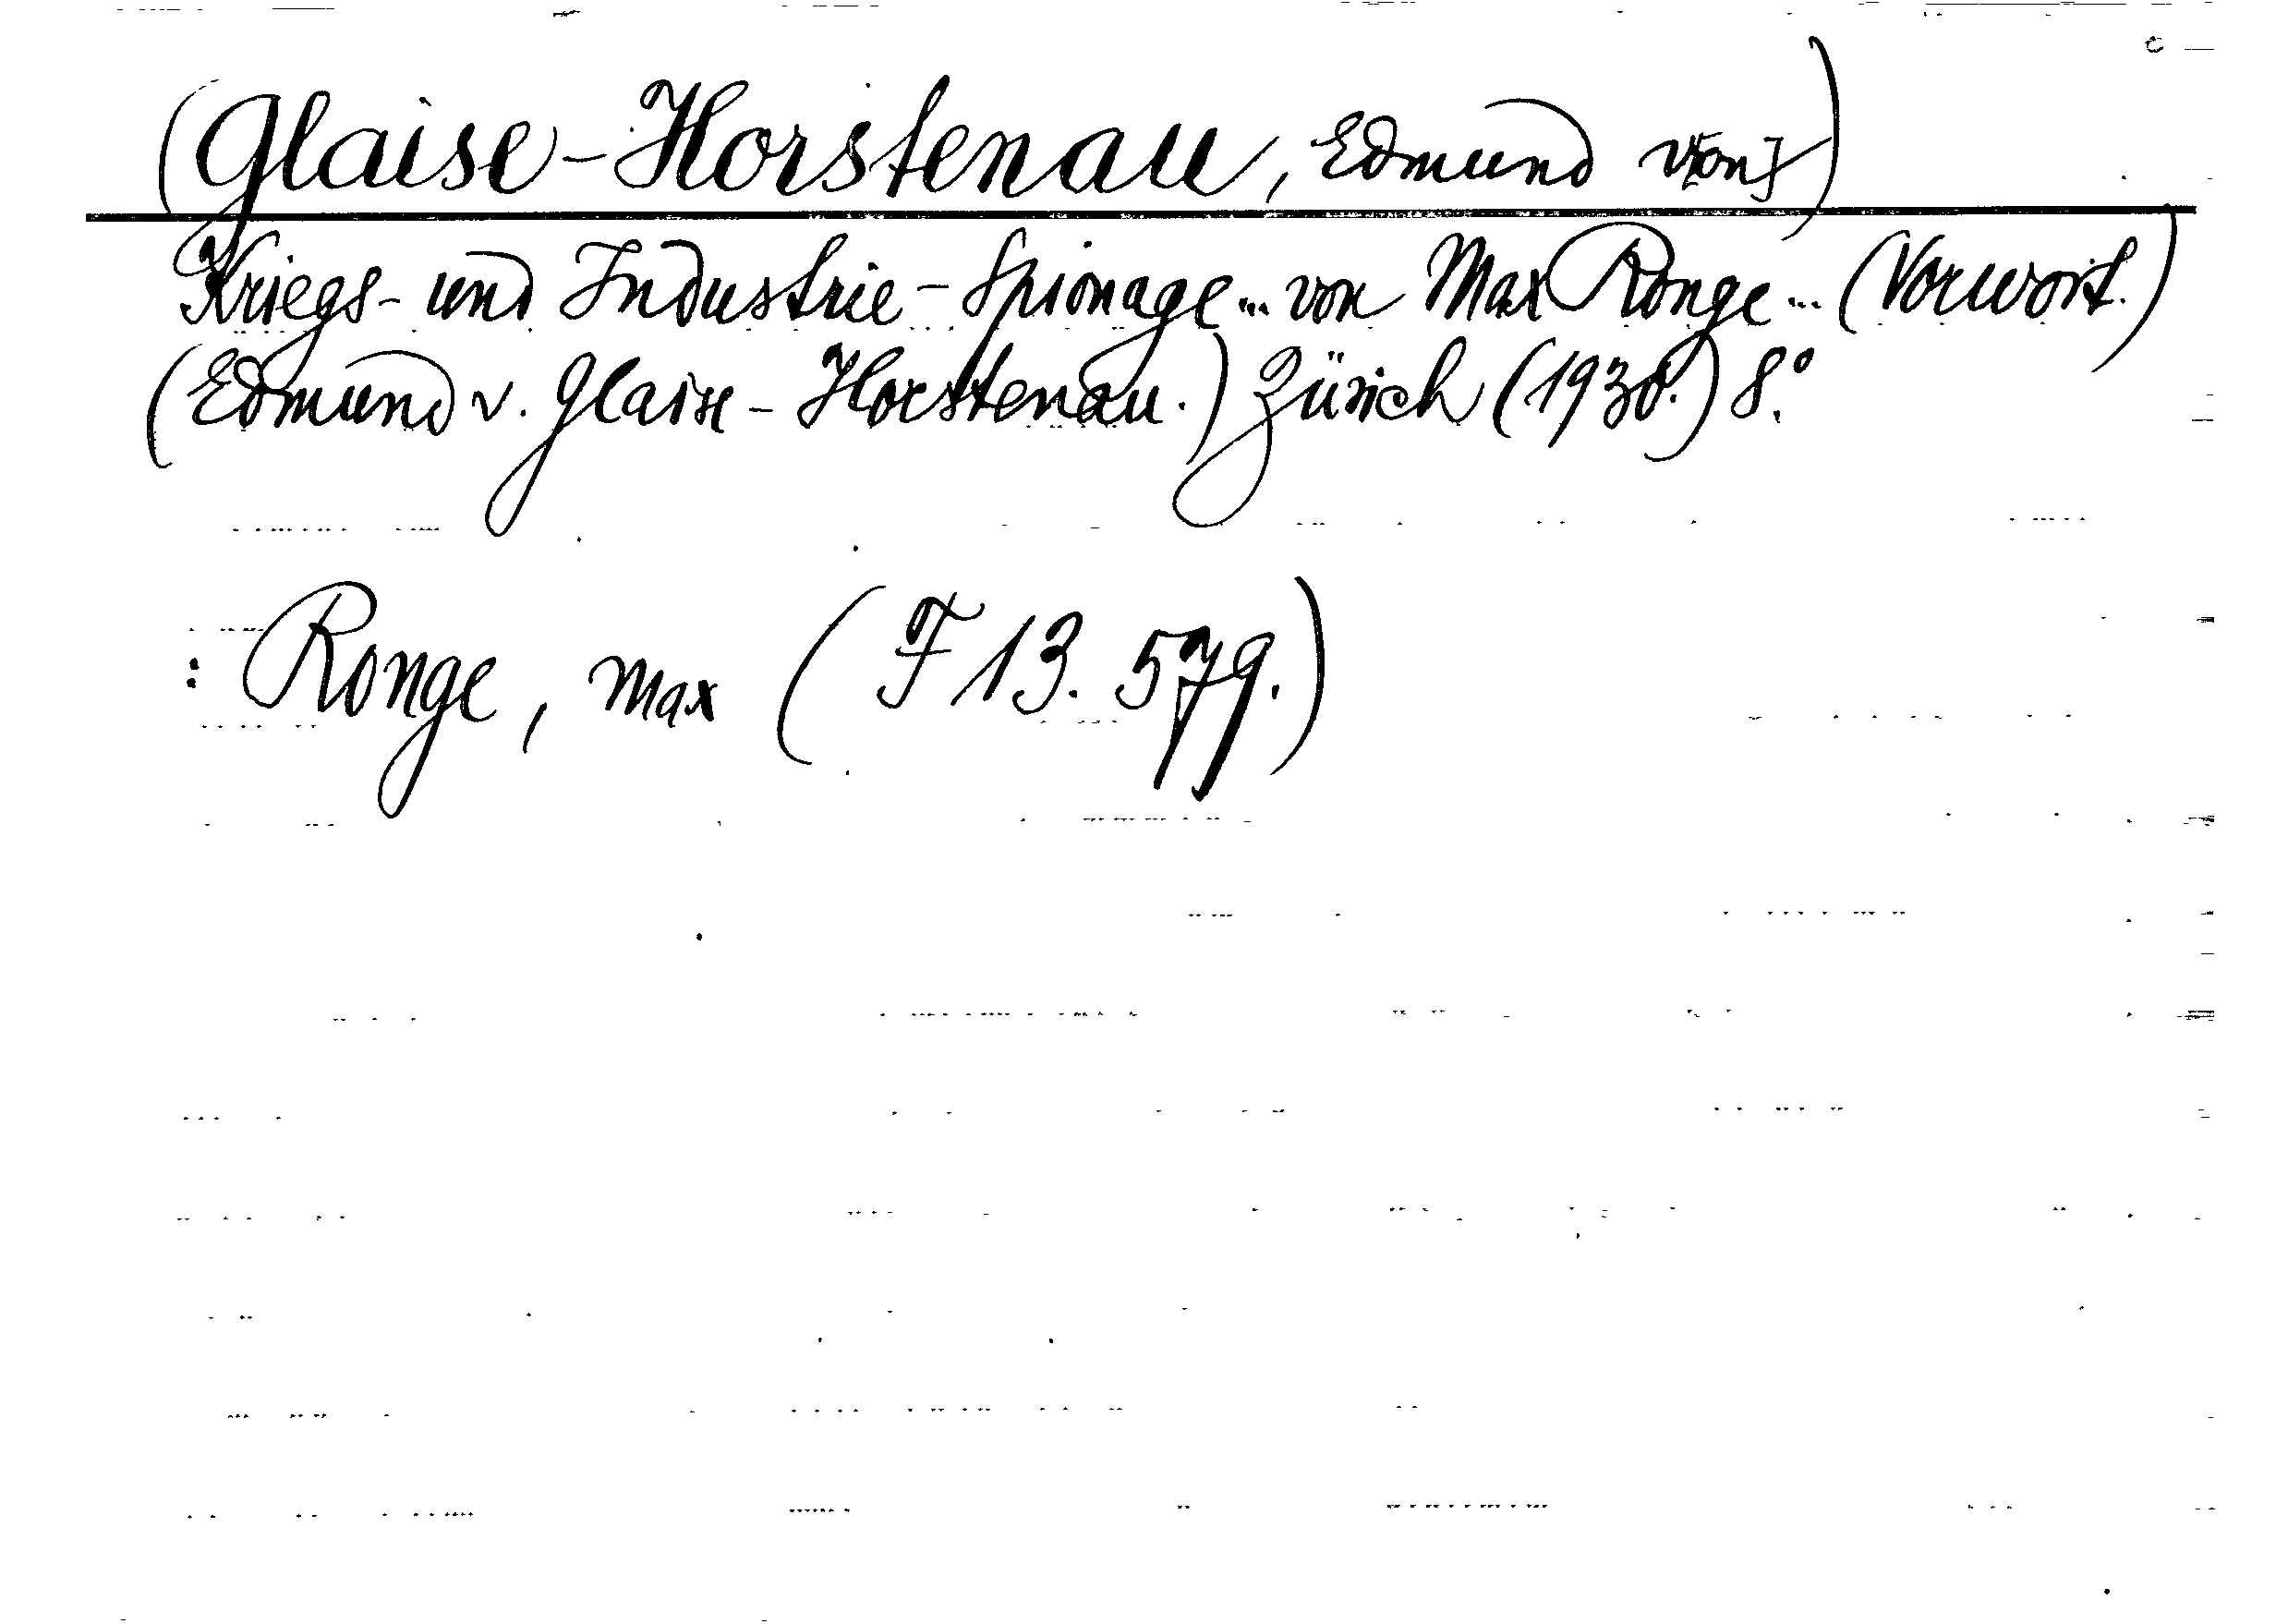 (Glaise-Horstenau, Edmund v[on])
Kriegs- und Industrie-Spionage... von Max Ronge... (Vorwort.)
(Edmund v. Glaise-Horstenau.) Zürich (1930.) 8.°
: Ronge, Max (F 13. 579.)